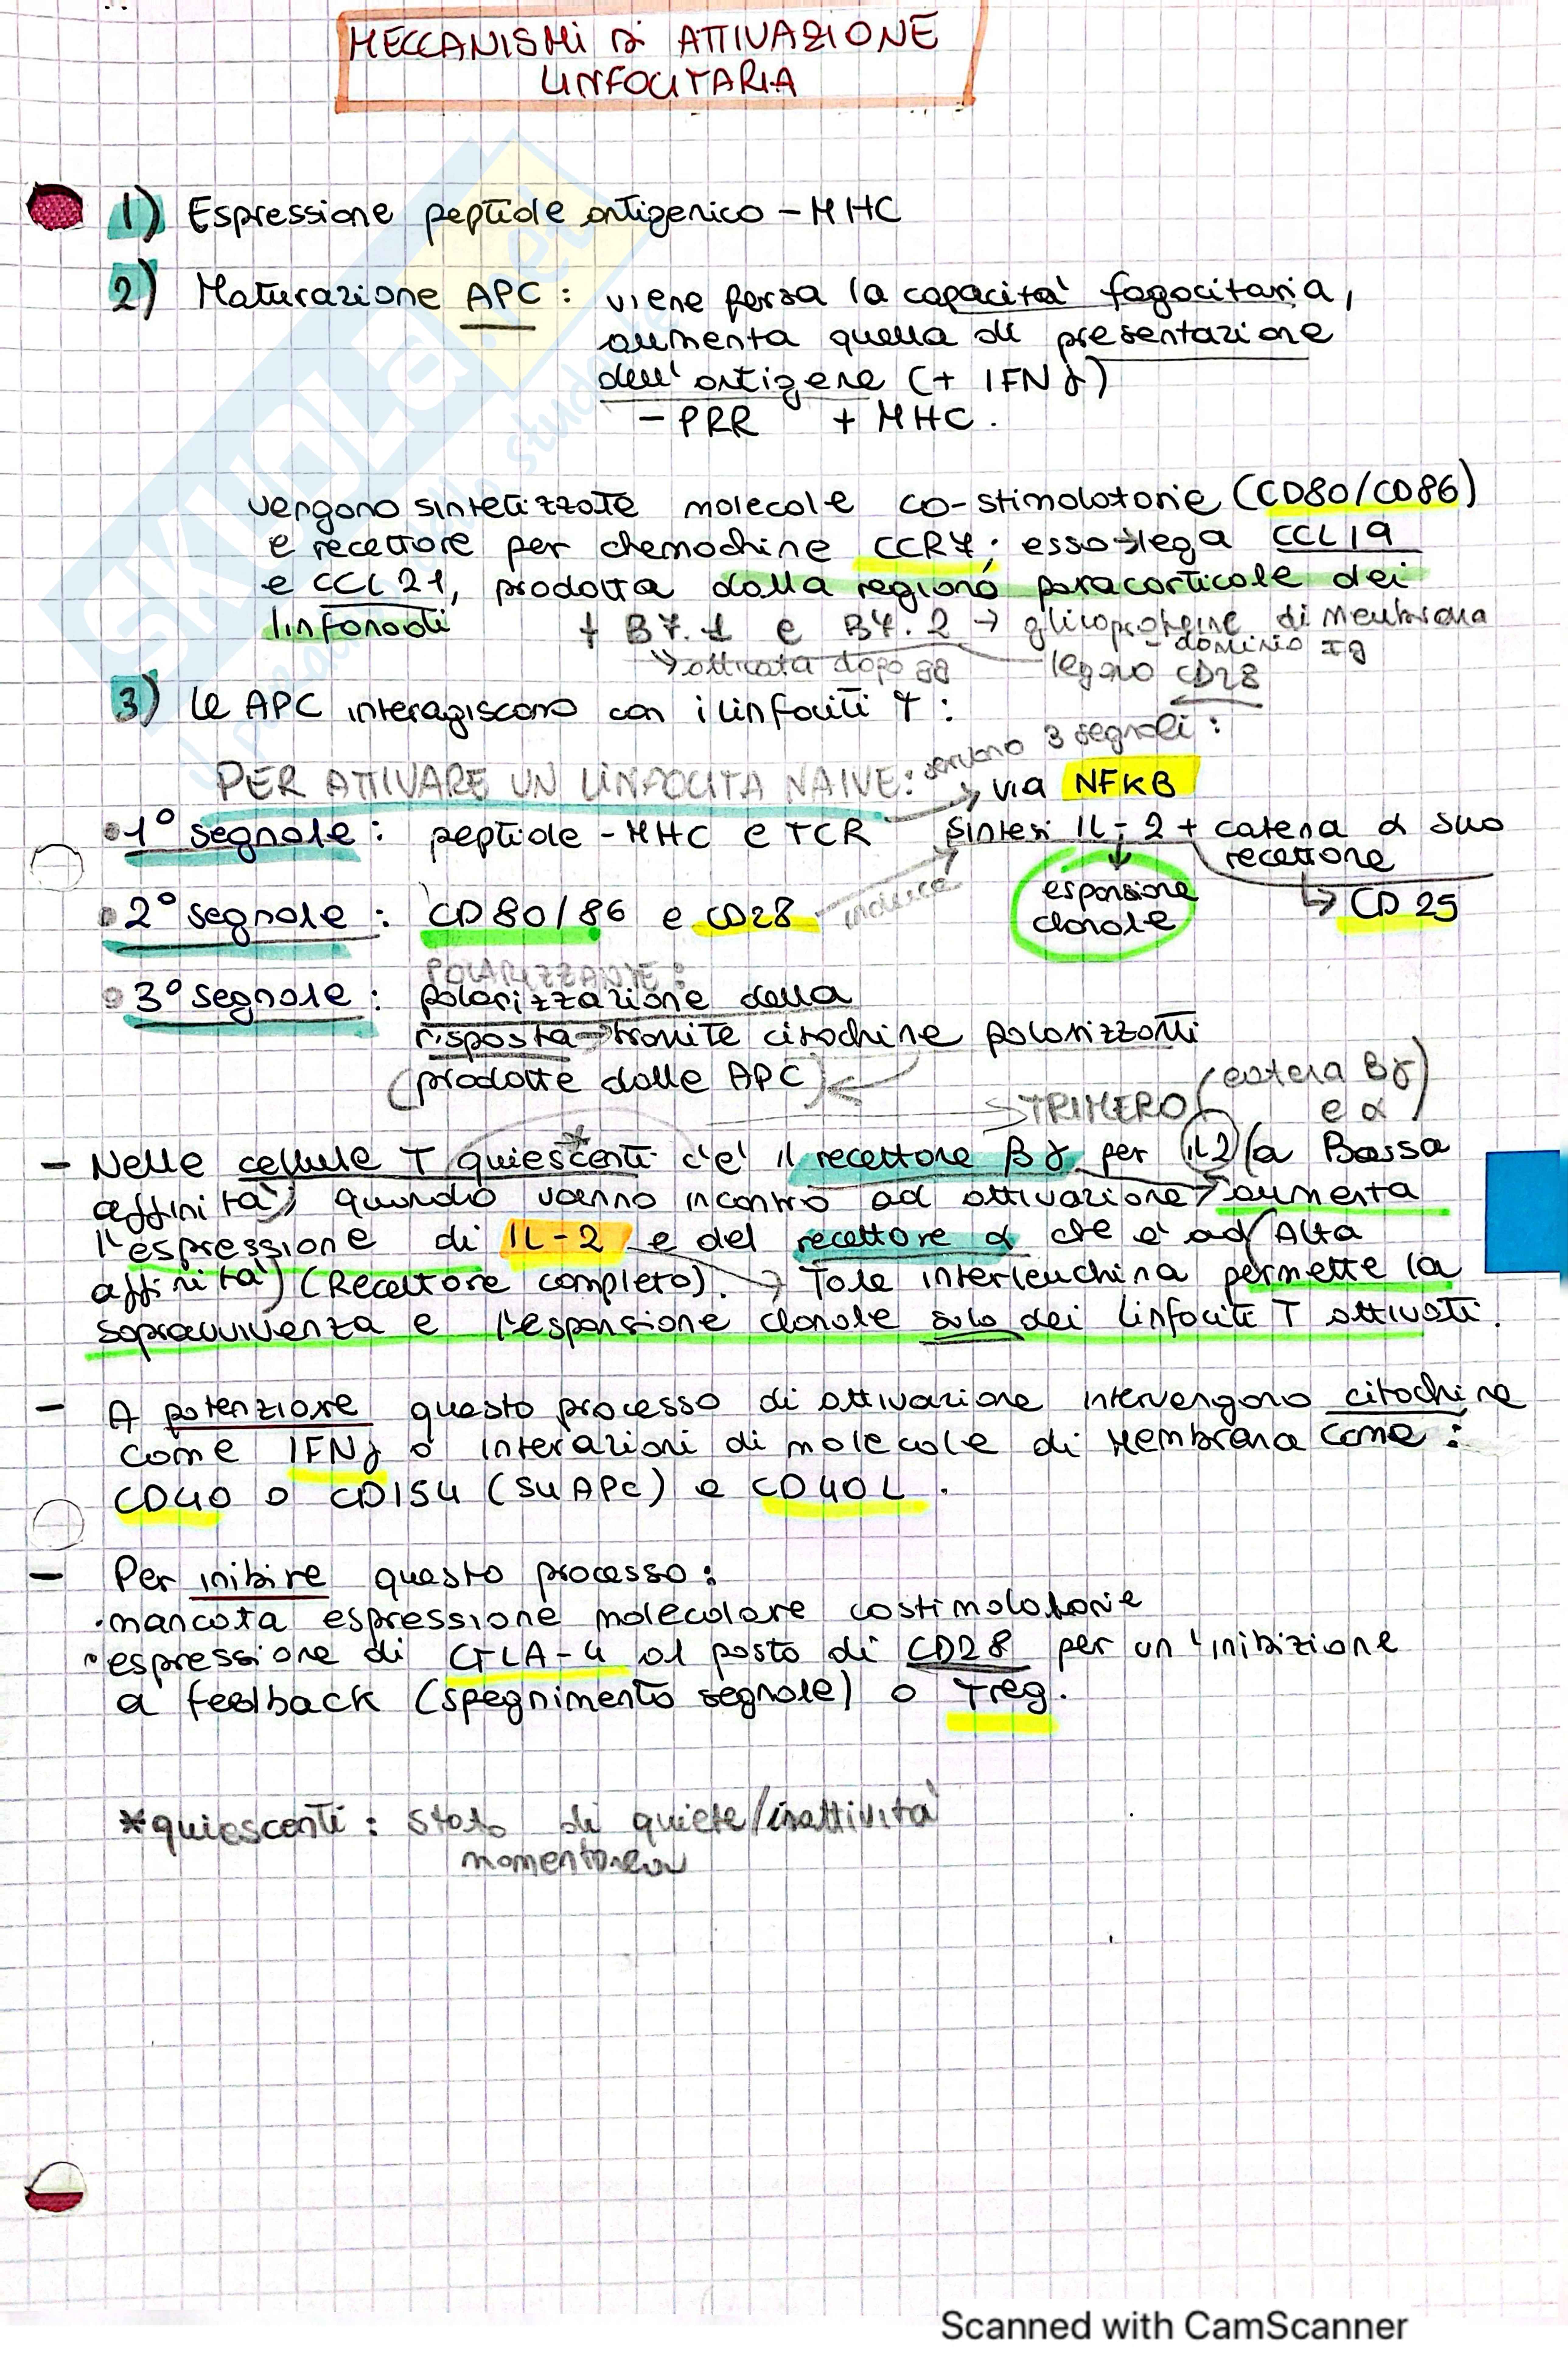 MECCANISMI DI ATTIVAZIONE
LINFOCITARIA
1) Espressione peptide antigenico - MHC
2) Maturazione APC: viene persa la capacità fagocitaria,
aumenta quella di presentazione
dell'antigene (+ IFNγ)
- PRR + MHC.
vengono sintetizzate molecole co-stimolatorie (CD80/CD86)
e recettore per chemochine CCR7; esso → lega CCL19
e CCL21, prodotta dalla regione paracorticale dei
linfonodi
+ B7.1 e B7.2 → glicoproteine di membrana
- dominio Ig
→ attivata dopo legano CD28
3) Le APC interagiscono con i linfociti T:
servono 3 segnali:
PER ATTIVARE UN LINFOCITA NAIVE:
→ via NFKB
• 1° segnale: peptide - MHC e TCR
sintesi IL-2 + catena α suo
recettore
↓
espansione
clonale
↳ CD25
• 2° segnale: CD80/86 e CD28
induce
POLARIZZANTE:
• 3° segnale: polarizzazione della
risposta → tramite citochine polarizzanti
(prodotte dalle APC)
→ TRIMERO (catena βγ
e α)
- Nelle cellule T quiescenti* c'è il recettore βγ per IL2 (a Bassa
affinità) quando vanno incontro ad attivazione → aumenta
l'espressione di IL-2 e del recettore α che è ad (Alta
affinità) (Recettore completo). → Tale interleuchina permette la
sopravvivenza e l'espansione clonale solo dei linfociti T attivati.
- A potenziare questo processo di attivazione intervengono citochine
come IFNγ o interazioni di molecole di membrana come:
CD40 o CD154 (su APC) e CD40L.
- Per inibire questo processo:
• mancata espressione molecolare costimolatorie
• espressione di CTLA-4 al posto di CD28 per un'inibizione
a feedback (spegnimento segnale) o Treg.
*quiescenti: stato di quiete/inattività
momentanea
SKUOLA.net
Scanned with CamScanner